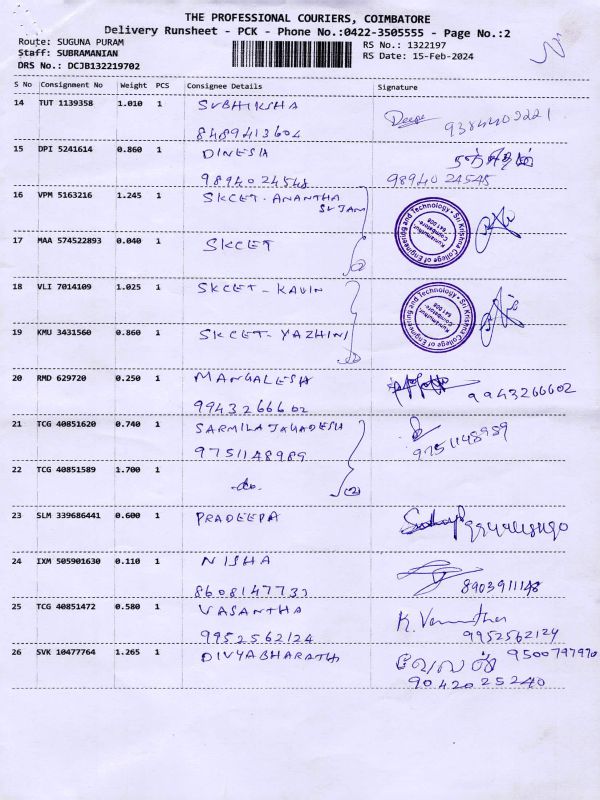 THE PROFESSIONAL COURIERS, COIMBATORE
Delivery Runsheet - PCK - Phone No.:0422-3505555 - Page No.:2
Route: SUGUNA PURAM
Staff: SUBRAMANIAN
DRS No.: DCJB132219702
RS No.: 1322197
RS Date: 15-Feb-2024
S No Consignment No Weight PCS Consignee Details Signature
14 TUT 1139358 1.010 1 SUBHIKSHA
8489413604 9384403221
15 DPI 5241614 0.860 1 DINESH
9894024548 9894024545
16 VPM 5163216 1.245 1 SKCET-ANANTHA
SUJAN
Sri Krishna College of Engineering and Technology
Kuniamuthur
Coimbatore-
641 008
17 MAA 574522893 0.040 1 SKCET
(2)
18 VLI 7014109 1.025 1 SKCET-KAVIN
Sri Krishna College of Engineering and Technology
Kuniamuthur
Coimbatore-
641 008
19 KMU 3431560 0.860 1 SKCET-YAZHINI
20 RMD 629720 0.250 1 MANGALESH
9943266602 9943266602
21 TCG 40851620 0.740 1 SARMILA JAGADESH
9751148989 9751148989
22 TCG 40851589 1.700 1 -do-
(2)
23 SLM 339686441 0.600 1 PRADEEPA
24 IXM 505901630 0.110 1 NISHA
8608147733 8903911148
25 TCG 40851472 0.580 1 VASANTHA
9952562124 9952562124
26 SVK 10477764 1.265 1 DIVYABHARATHI
9500797970
9042025240